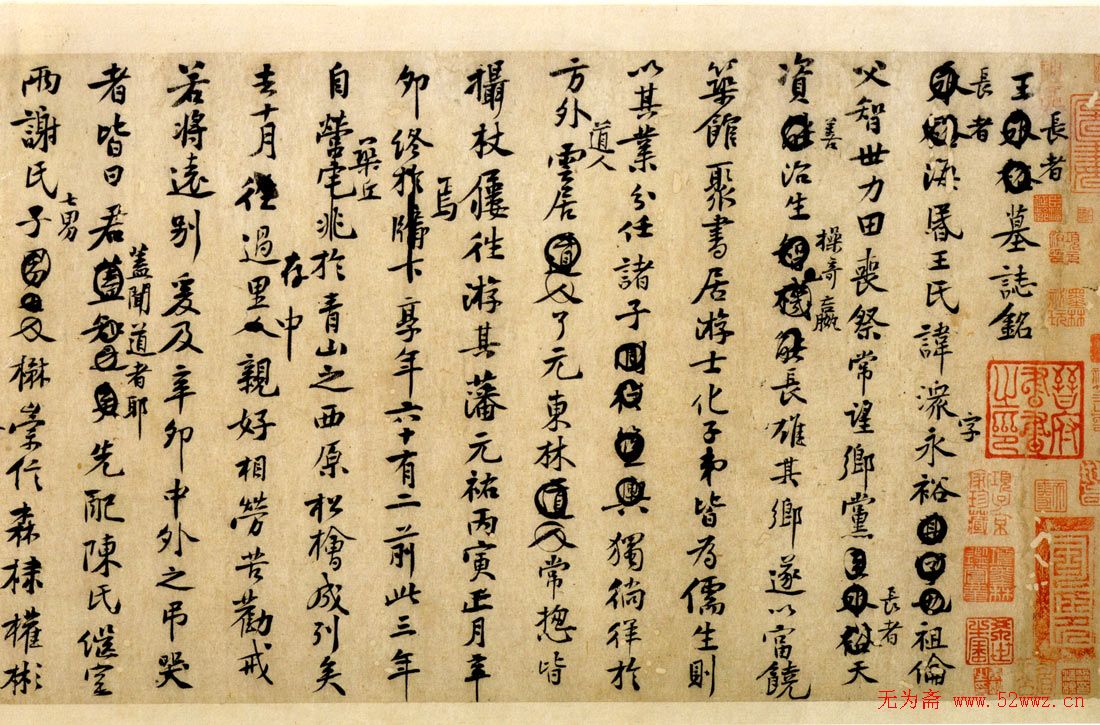 王長者墓誌銘
長者海昬王氏諱潨字永裕祖倫
父智世力田喪祭常望鄉黨長者天
資善治生操奇贏長雄其鄉遂以富饒
築館聚書居游士化子弟皆為儒生則
以其業分任諸子獨徜徉於
方外道人雲居了元東林常揔皆
攝杖屨往游其藩焉元祐丙寅正月辛
卯終於牖下享年六十有二前此三年
自營宅兆築丘於青山之西原松檜成列矣
去十月過里存中親好相勞苦勸戒
若將遠別爰及辛卯中外之弔哭
者皆曰君蓋聞道者耶先配陳氏繼室
兩謝氏子七男楙崇森棣權彬
无为斋 www.52wwz.cn